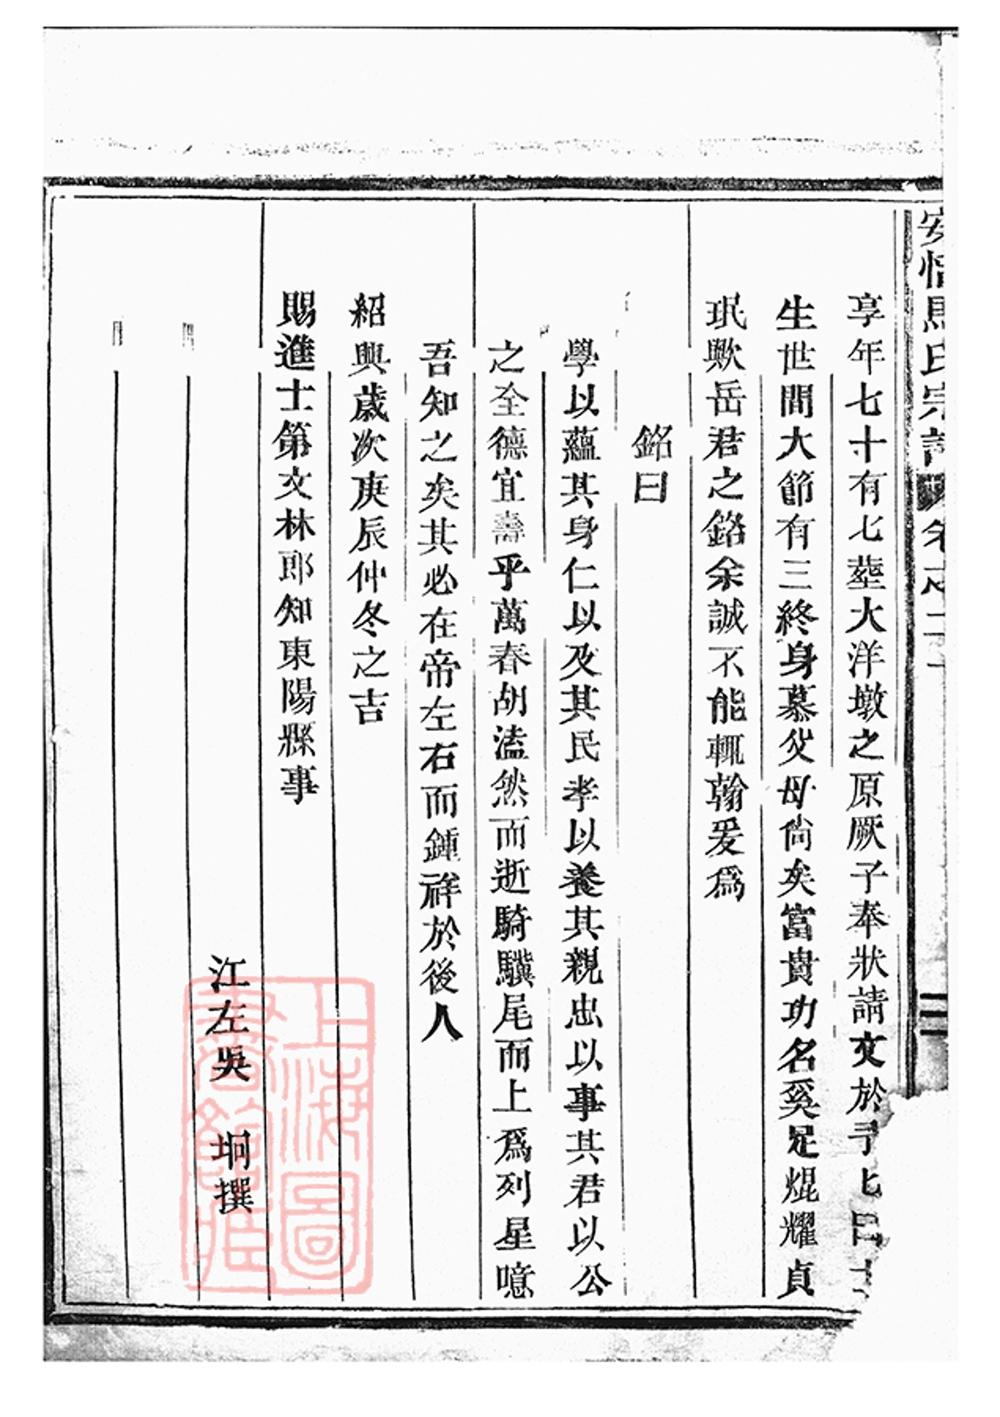 安恬馬氏宗譜 卷之二十
享年七十有七塟大洋墩之原厥子奉狀請文於予曰士
生世間大節有三終身慕父母尚矣富貴功名奚足焜耀貞
珉歟岳君之銘余誠不能輒翰爰爲
銘曰
學以蘊其身仁以及其民孝以養其親忠以事其君以公
之全德宜壽乎萬春胡溘然而逝騎驥尾而上爲列星噫
吾知之矣其必在帝左右而鍾祥於後人
紹興歲次庚辰仲冬之吉
賜進士第文林郎知東陽縣事
江左吳 垌撰
上海圖
書館藏